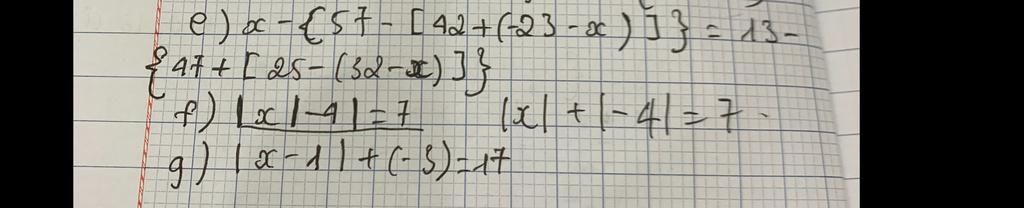 e) x - {57 - [42 + (-23 - x)]} = 13 -
{47 + [25 - (32 - x)]}
f) |x|-4|=7 |x| + |-4| = 7.
g) |x-1| + (-3) = 17